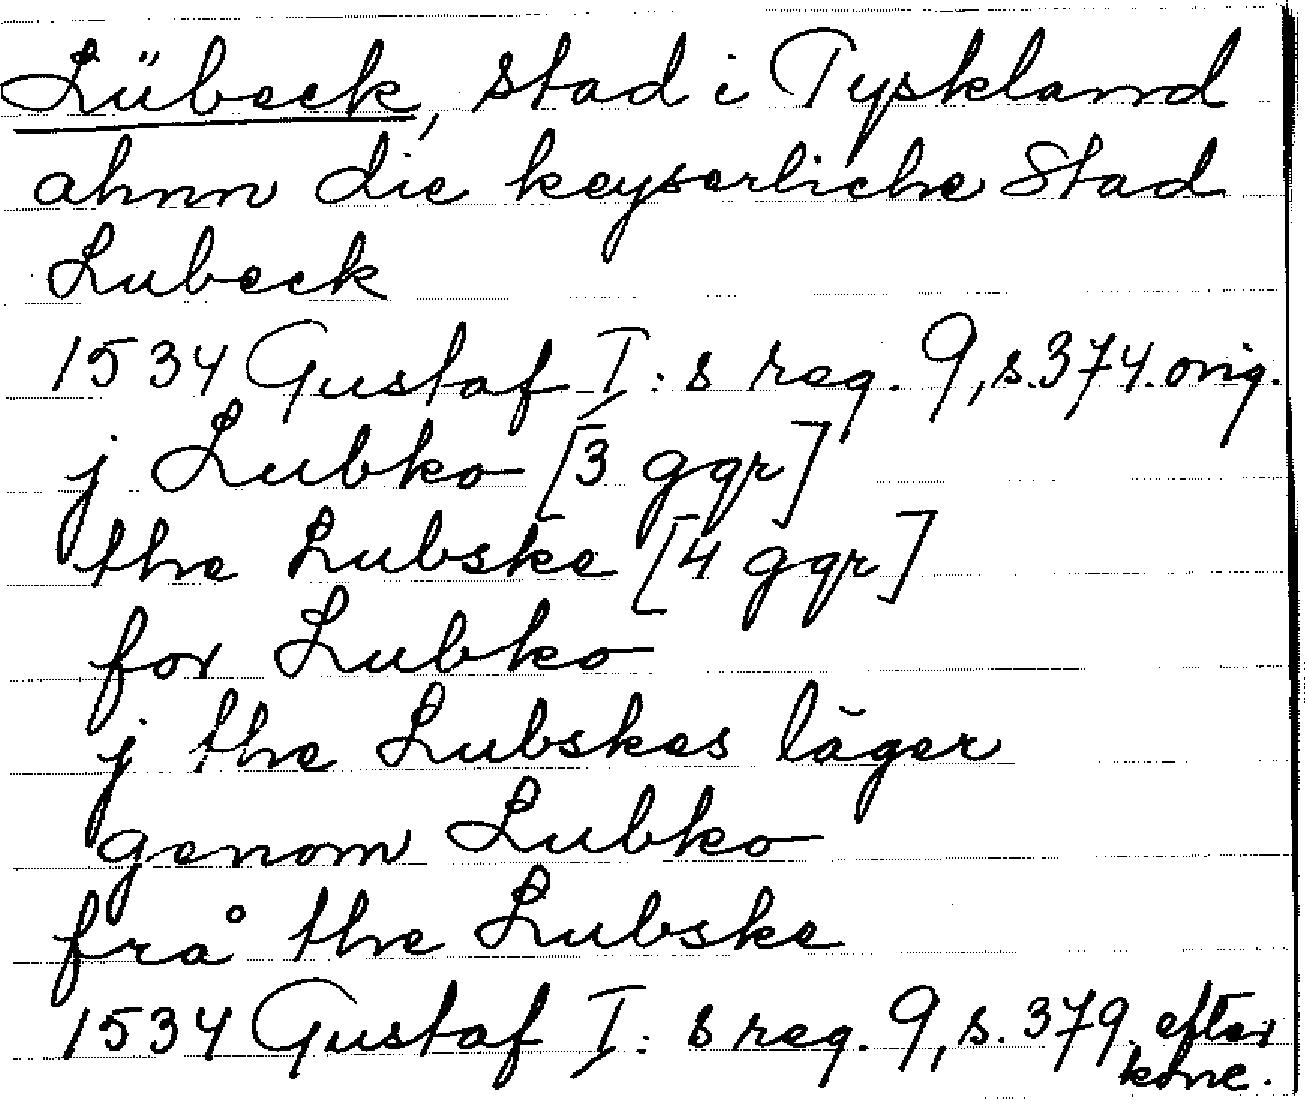 Lübeck, stad i Tyskland
ahnn die keyserliche Stad
Lubeck
1534 Gustaf I:s reg. 9, s. 374. orig.
j Lubko [3 ggr]
the Lubske [4 ggr]
for Lubko
j the Lubskes läger
genom Lubko
frå the Lubske
1534 Gustaf I:s reg. 9, s. 379. efter
konc.